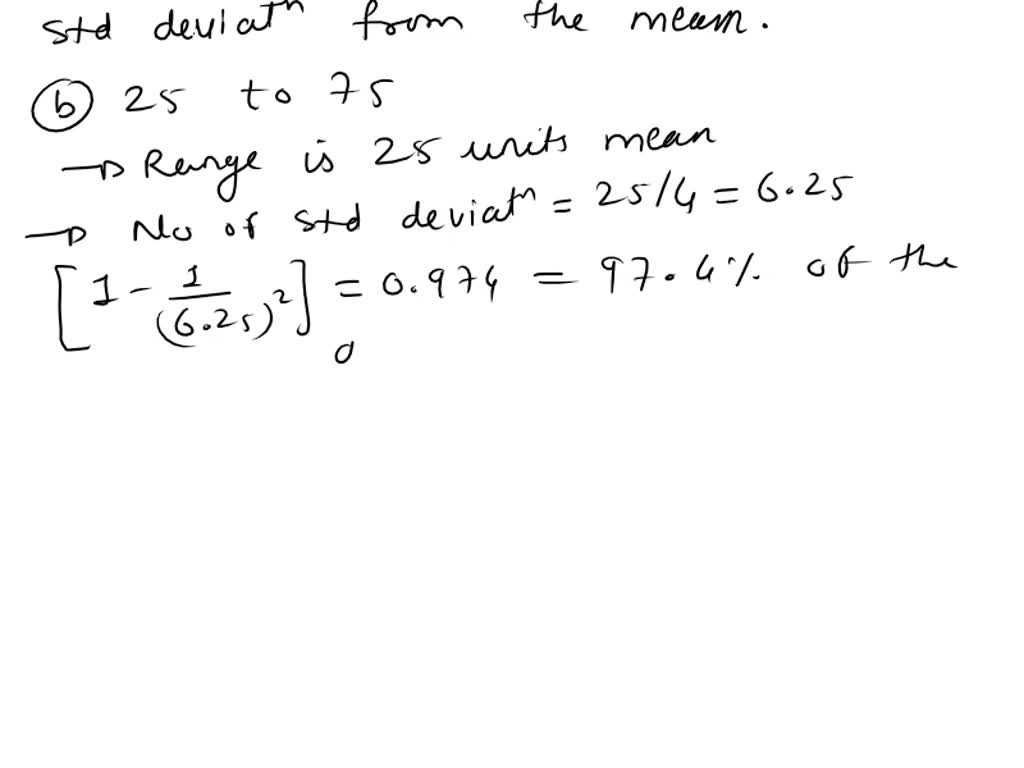 std deviatⁿ from the mean.
ⓑ 25 to 75
→ Range is 25 units mean
→ No of std deviatⁿ = 25/4 = 6.25
[1 - 1/(6.25)²] = 0.974 = 97.4% of the
d